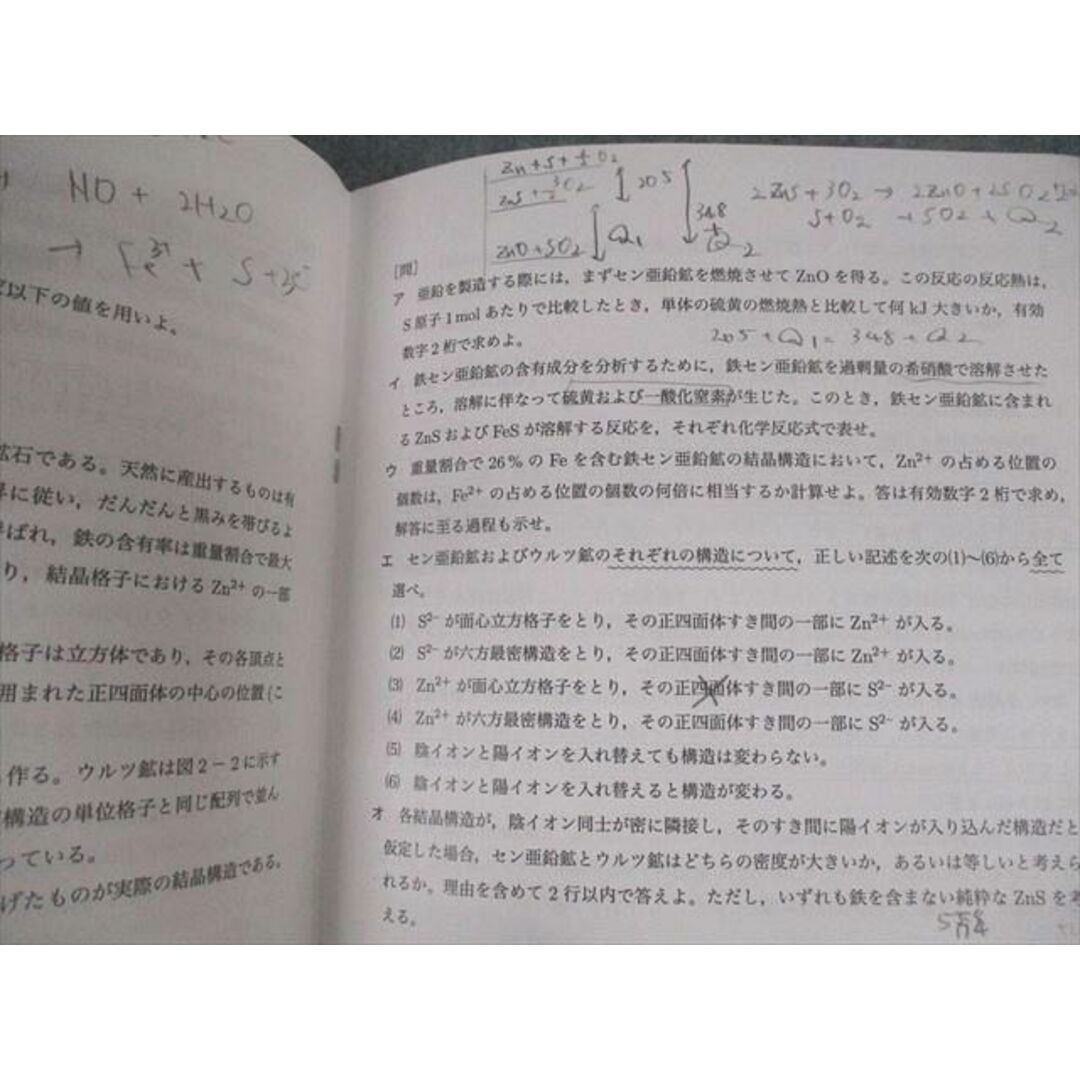 NO + 2H2O
→ Fe3+ + S +
以下の値を用いよ。
鉱石である。天然に産出するものは有
に従い，だんだんと黒みを帯びるよ
ばれ，鉄の含有率は重量割合で最大
り，結晶格子における Zn²⁺ の一部
格子は立方体であり，その各頂点と
用まれた正四面体の中心の位置(こ
作る。ウルツ鉱は図2－2に示す
構造の単位格子と同じ配列で並ん
っている。
げたものが実際の結晶構造である。
Zn + S + O2
ZnS + 3/2 O2
ZnO + SO2
205
Q1
348
+
Q2
2ZnS + 3O2 → 2ZnO + 2SO2
S + O2 → SO2 + Q2
[問]
ア 亜鉛を製造する際には，まずセン亜鉛鉱を燃焼させて ZnO を得る。この反応の反応熱は，
S 原子 1 mol あたりで比較したとき，単体の硫黄の燃焼熱と比較して何 kJ 大きいか，有効
数字 2 桁で求めよ。
205 + Q1 = 348 + Q2
イ 鉄セン亜鉛鉱の含有成分を分析するために，鉄セン亜鉛鉱を過剰量の希硝酸で溶解させた
ところ，溶解に伴なって硫黄および一酸化窒素が生じた。このとき，鉄セン亜鉛鉱に含まれ
る ZnS および FeS が溶解する反応を，それぞれ化学反応式で表せ。
ウ 重量割合で 26 % の Fe を含む鉄セン亜鉛鉱の結晶構造において，Zn²⁺ の占める位置の
個数は，Fe²⁺ の占める位置の個数の何倍に相当するか計算せよ。答は有効数字 2 桁で求め，
解答に至る過程も示せ。
エ セン亜鉛鉱およびウルツ鉱のそれぞれの構造について，正しい記述を次の(1)～(6)から全て
選べ。
(1) S²⁻ が面心立方格子をとり，その正四面体すき間の一部に Zn²⁺ が入る。
(2) S²⁻ が六方最密構造をとり，その正四面体すき間の一部に Zn²⁺ が入る。
(3) Zn²⁺ が面心立方格子をとり，その正四面体すき間の一部に S²⁻ が入る。
(4) Zn²⁺ が六方最密構造をとり，その正四面体すき間の一部に S²⁻ が入る。
(5) 陰イオンと陽イオンを入れ替えても構造は変わらない。
(6) 陰イオンと陽イオンを入れ替えると構造が変わる。
オ 各結晶構造が，陰イオン同士が密に隣接し，そのすき間に陽イオンが入り込んだ構造だと
仮定した場合，セン亜鉛鉱とウルツ鉱はどちらの密度が大きいか，あるいは等しいと考えら
れるか。理由を含めて 2 行以内で答えよ。ただし，いずれも鉄を含まない純粋な ZnS を考
える。